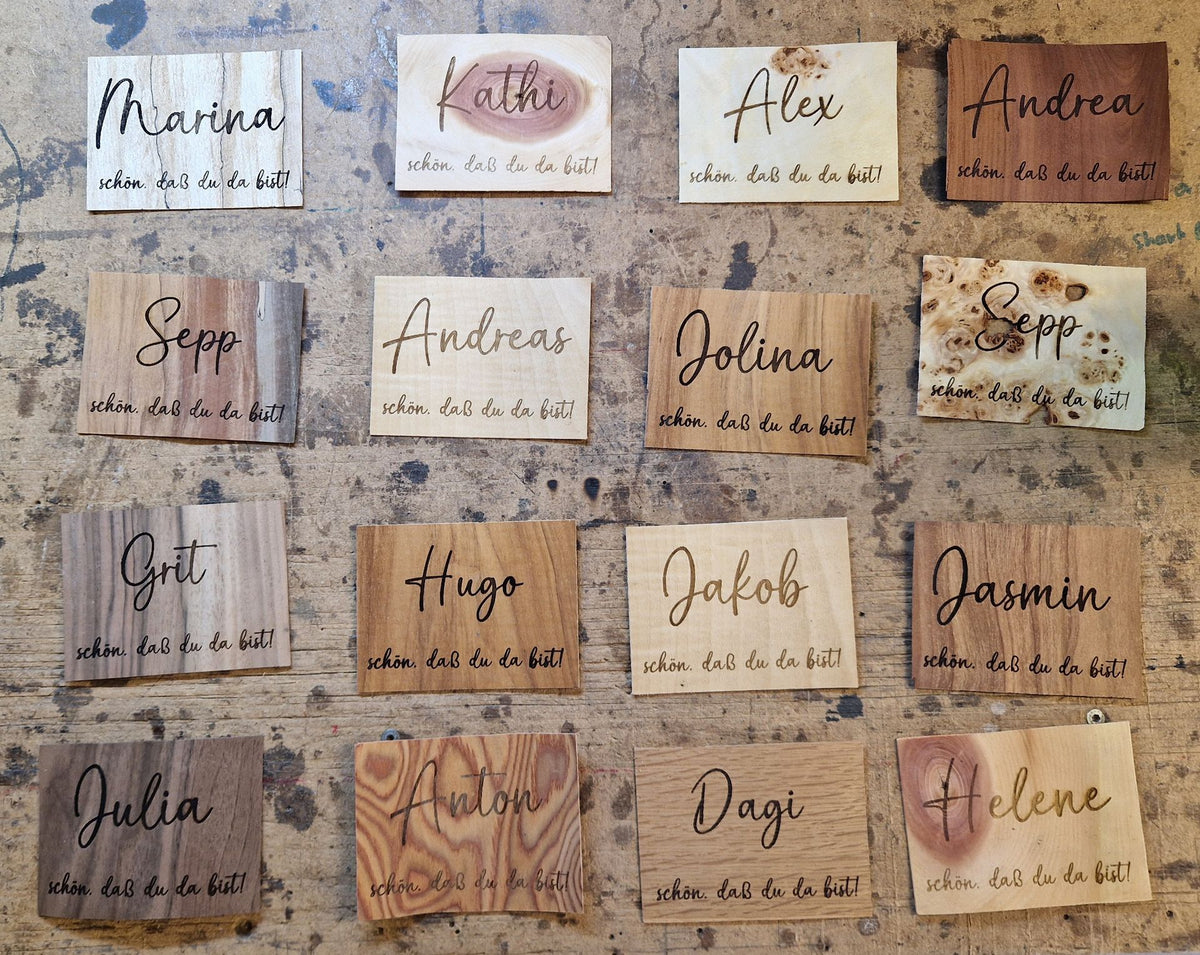 Marina
schön. daß du da bist!
Kathi
schön. daß du da bist!
Alex
schön. daß du da bist!
Andrea
schön. daß du da bist!
Sepp
schön. daß du da bist!
Andreas
schön. daß du da bist!
Jolina
schön. daß du da bist!
Sepp
schön. daß du da bist!
Grit
schön. daß du da bist!
Hugo
schön. daß du da bist!
Jakob
schön. daß du da bist!
Jasmin
schön. daß du da bist!
Julia
schön. daß du da bist!
Anton
schön. daß du da bist!
Dagi
schön. daß du da bist!
Helene
schön. daß du da bist!